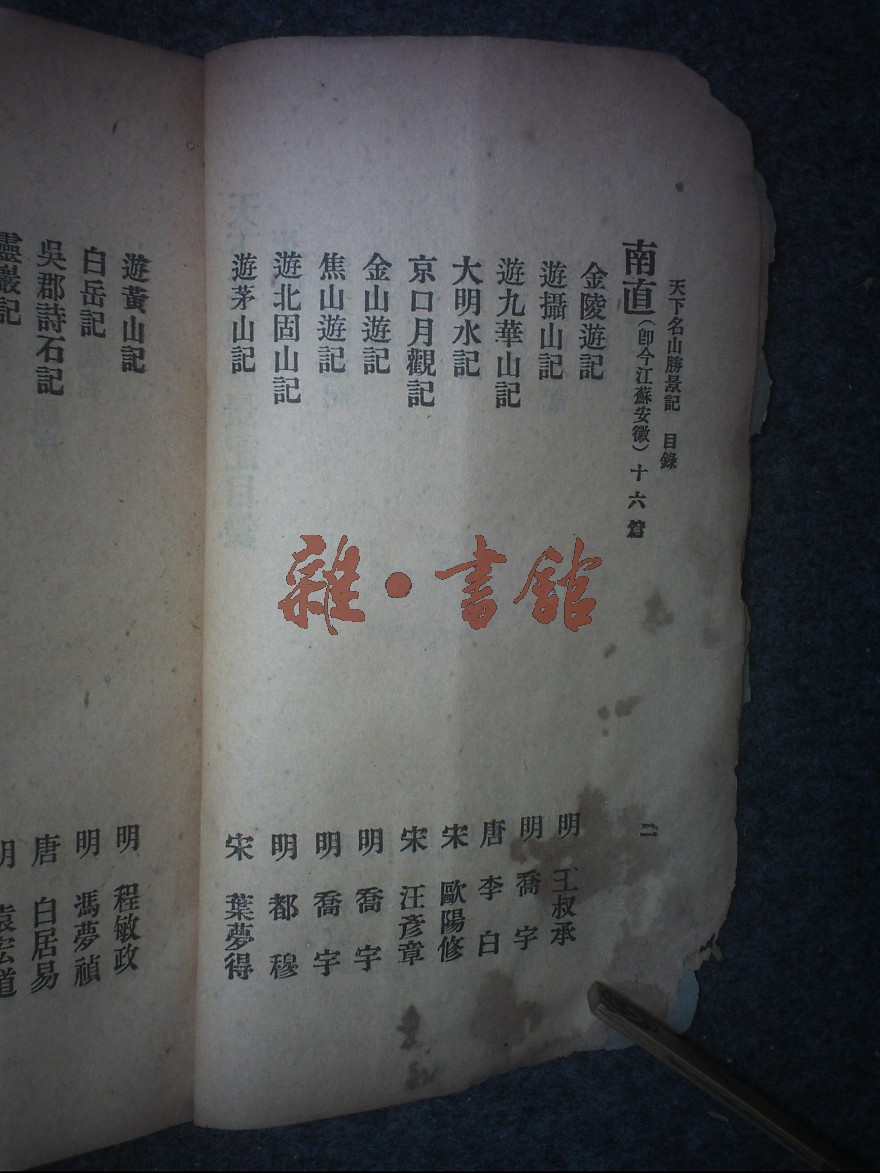 天下名山勝景記 目錄 二
南直(卽今江蘇安徽)十六篇
金陵遊記 明 王叔承
遊攝山記 明 喬宇
遊九華山記 唐 李白
大明水記 宋 歐陽修
京口月觀記 宋 汪彥章
金山遊記 明 喬宇
焦山遊記 明 喬宇
遊北固山記 明 都穆
遊茅山記 宋 葉夢得
遊黃山記 明 程敏政
白岳記 明 馮夢禎
吳郡詩石記 唐 白居易
靈巖記 明 袁宏道
雜·書館